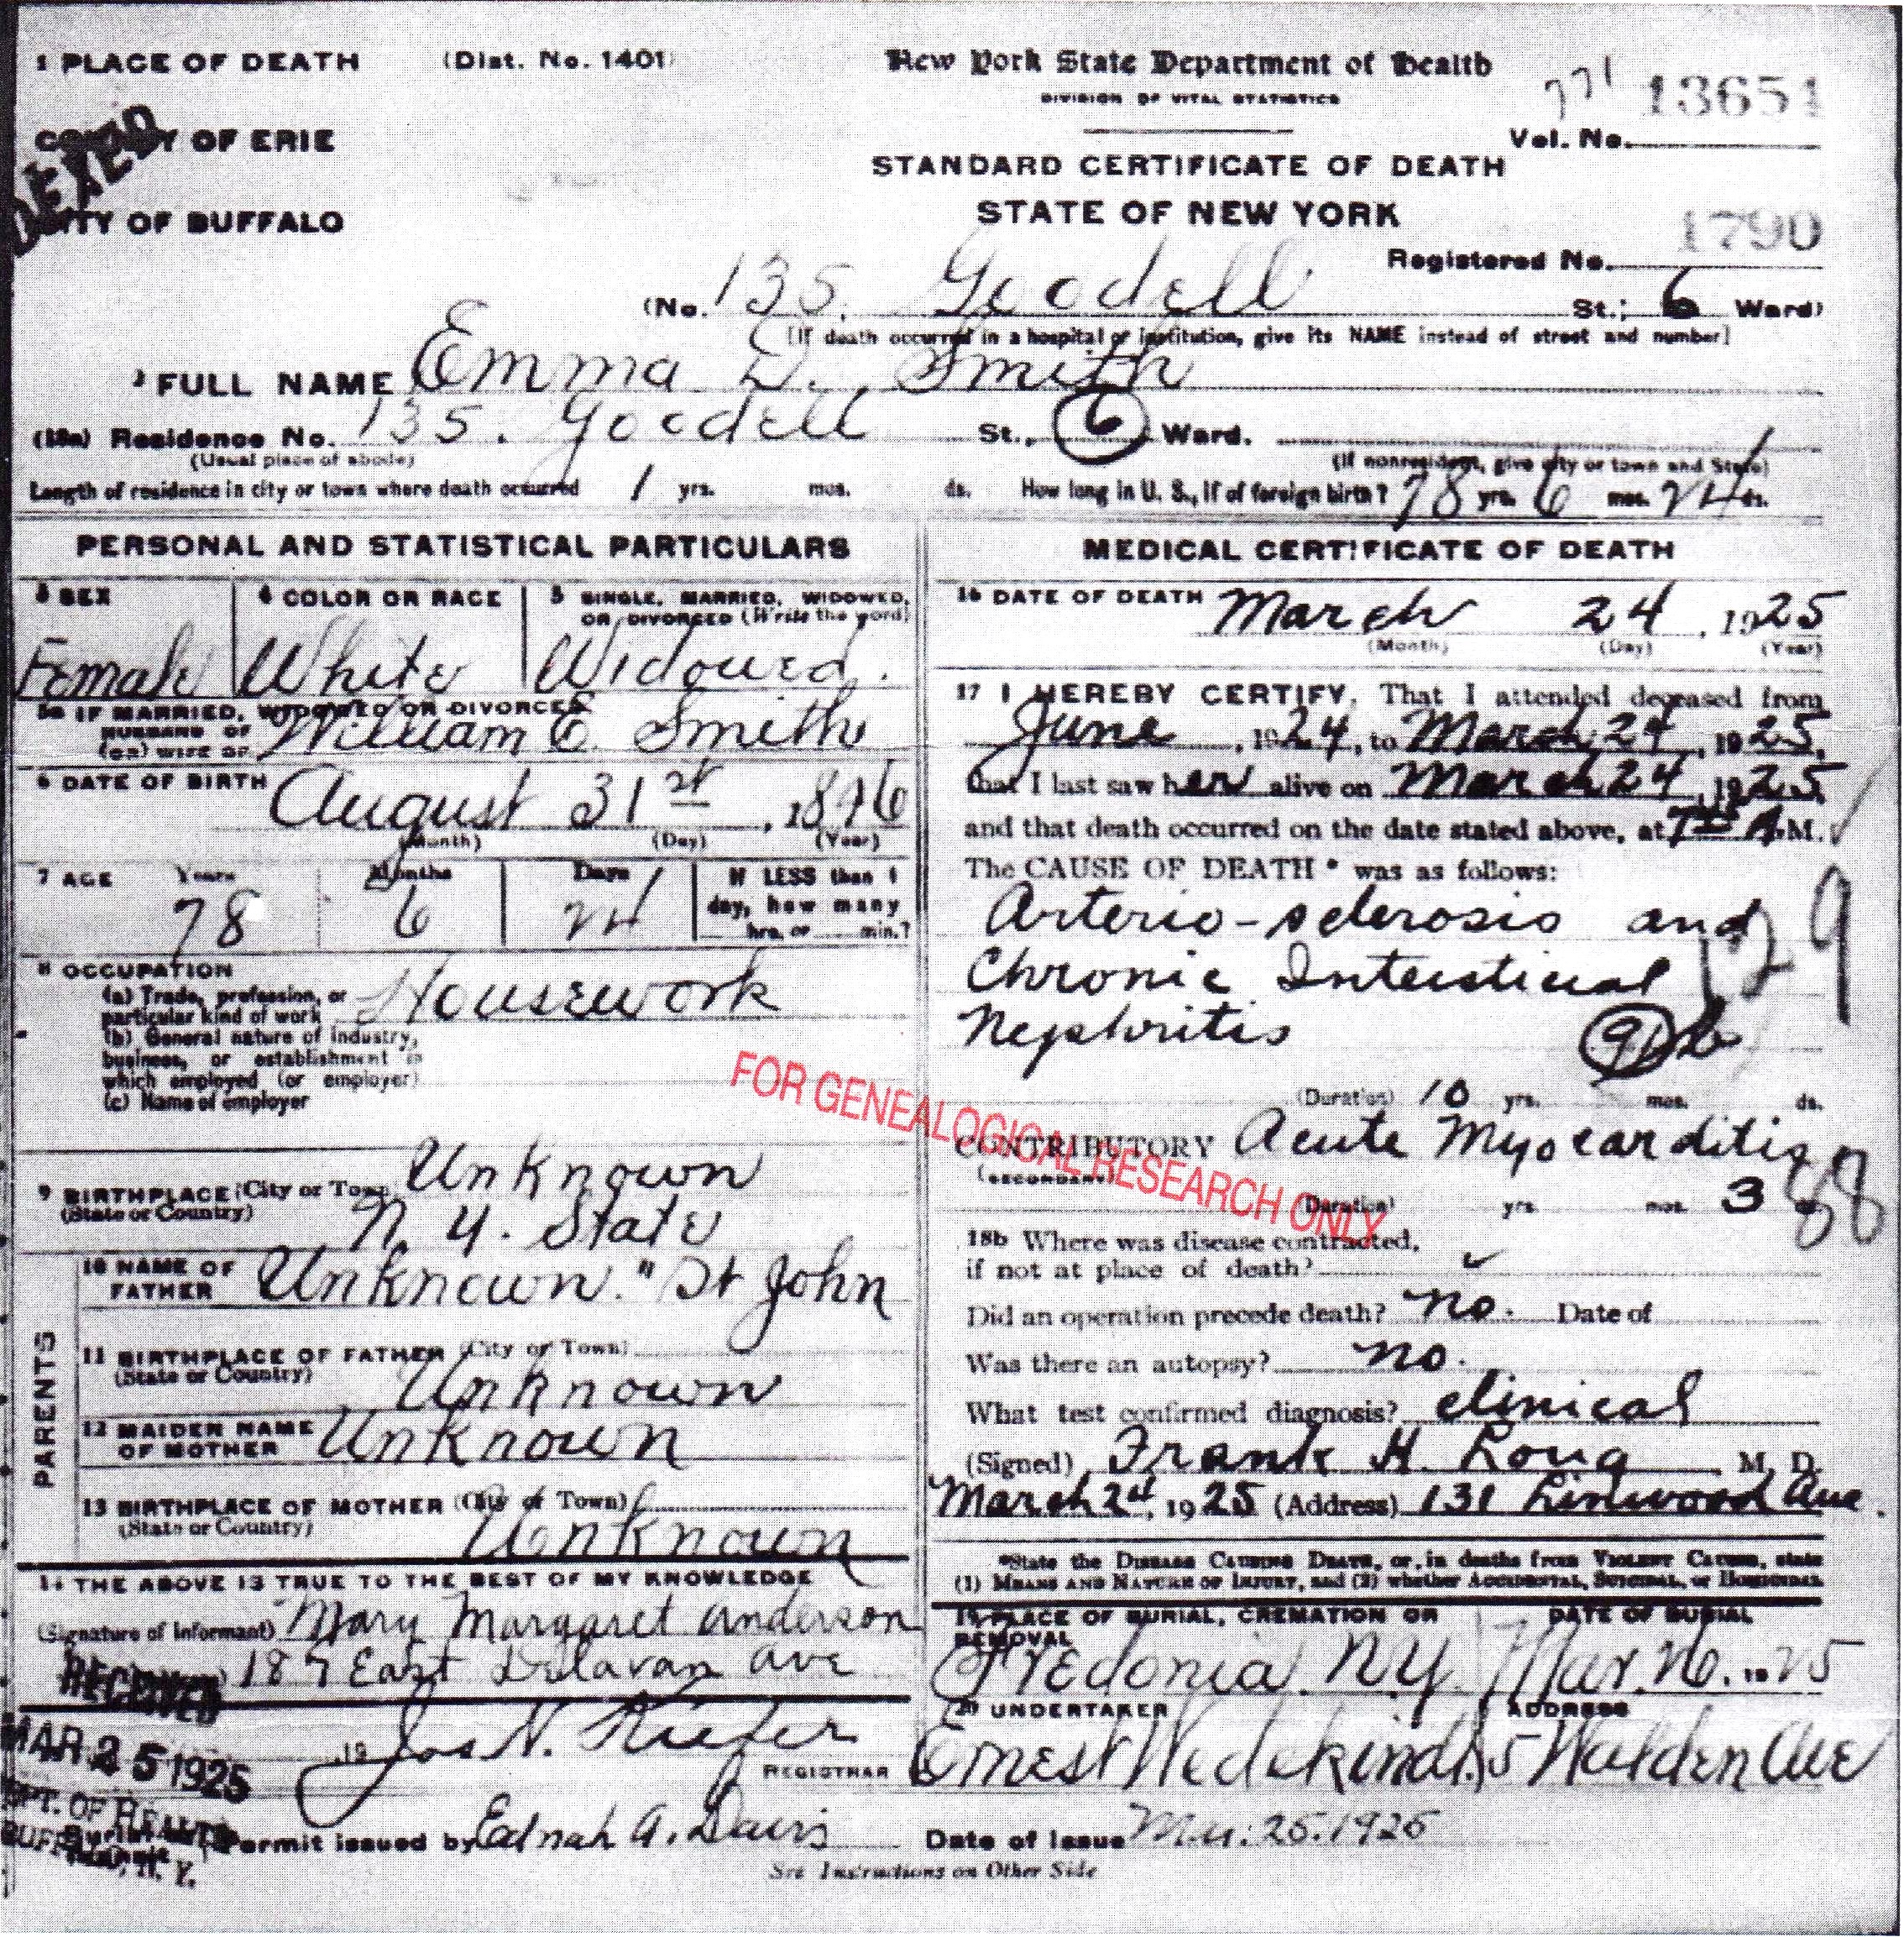 1 PLACE OF DEATH (Dist. No. 1401)
New York State Department of Health
DIVISION OF VITAL STATISTICS
771 13651
Vol. No.
COUNTY OF ERIE
STANDARD CERTIFICATE OF DEATH
CITY OF BUFFALO
STATE OF NEW YORK
1790
Registered No.
(No. 135. Goodell St.; 6 Ward)
[If death occurred in a hospital or institution, give its NAME instead of street and number]
2 FULL NAME Emma D. Smith
(18a) Residence No. 135. Goodell St., 6 Ward.
(Usual place of abode) (If nonresident, give city or town and State)
Length of residence in city or town where death occurred 1 yrs. mos. ds. How long in U. S., if of foreign birth? 78 yrs. 6 mos. 24 ds.
PERSONAL AND STATISTICAL PARTICULARS
3 SEX
Female
4 COLOR OR RACE
White
5 SINGLE, MARRIED, WIDOWED,
OR DIVORCED (Write the word)
Widowed.
5a IF MARRIED, WIDOWED OR DIVORCED
HUSBAND OF
(or) WIFE OF William E. Smith
6 DATE OF BIRTH August 31st, 1846
(Month) (Day) (Year)
7 AGE Years Months Days
78 6 24
If LESS than 1
day, how many
hrs. or min.?
8 OCCUPATION
(a) Trade, profession, or
particular kind of work Housework
(b) General nature of industry,
business, or establishment in
which employed (or employer)
(c) Name of employer
9 BIRTHPLACE (City or Town) Unknown
(State or Country) N. Y. State
PARENTS
10 NAME OF
FATHER Unknown. " St John
11 BIRTHPLACE OF FATHER (City or Town)
(State or Country) Unknown
12 MAIDEN NAME
OF MOTHER Unknown
13 BIRTHPLACE OF MOTHER (City or Town)
(State or Country) Unknown
14 THE ABOVE IS TRUE TO THE BEST OF MY KNOWLEDGE
(Signature of Informant) Mary Margaret Anderson
187 East Delavan Ave
RECEIVED
MAR 25 1925
19 Jos N. Kiefer
REGISTRAR
MEDICAL CERTIFICATE OF DEATH
16 DATE OF DEATH March 24, 1925
(Month) (Day) (Year)
17 I HEREBY CERTIFY, That I attended deceased from
June, 1924, to March 24, 1925,
that I last saw her alive on March 24, 1925
and that death occurred on the date stated above, at A.M.
The CAUSE OF DEATH * was as follows:
Arterio-sclerosis and
129
Chronic Intersticial
Nephritis
91 b
(Duration) 10 yrs. mos. ds.
CONTRIBUTORY Acute Myocarditis
(SECONDARY)
88
(Duration) yrs. mos. 3
FOR GENEALOGICAL RESEARCH ONLY
18b Where was disease contracted,
if not at place of death?
Did an operation precede death? no. Date of
Was there an autopsy? no.
What test confirmed diagnosis? clinical
(Signed) Frank H. Long M. D.
March 24, 1925 (Address) 131 Linwood Ave.
*State the DISEASE CAUSING DEATH, or, in deaths from VIOLENT CAUSES, state
(1) MEANS AND NATURE OF INJURY, and (2) whether ACCIDENTAL, SUICIDAL, or HOMICIDAL
19 PLACE OF BURIAL, CREMATION OR
REMOVAL
Fredonia. NY.
DATE OF BURIAL
Mar. 26. 1925
20 UNDERTAKER
Ernest Wedekindt
ADDRESS
Walden Ave
DEPT. OF HEALTH
BUFFALO, N. Y.
Permit issued by Ednah A. Davis Date of Issue Mar. 25. 1925
See Instructions on Other Side